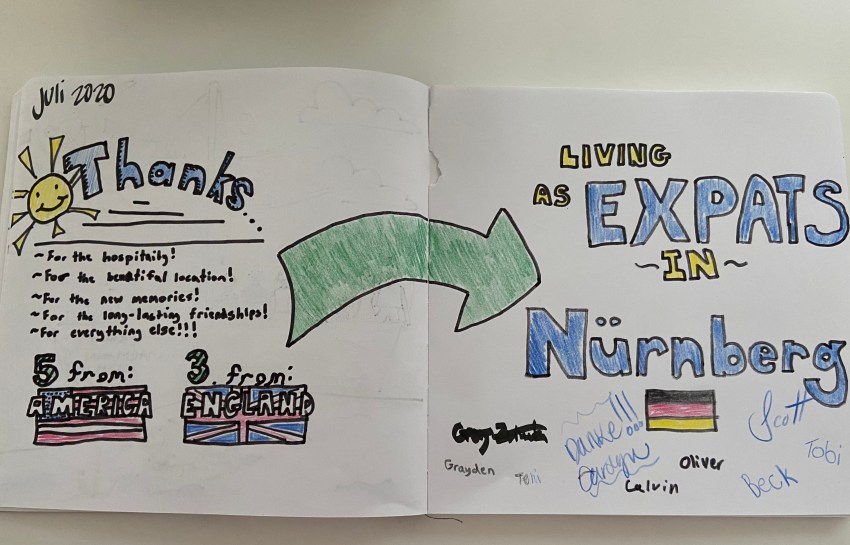 Juli 2020
Thanks...
~For the hospitaily!
~For the beautiful location!
~For the new memories!
~For the long-lasting friendships!
~For everything else!!!
5 from:
AMERICA
3 from:
ENGLAND
LIVING
AS EXPATS
~IN~
Nürnberg
Danke!!!
Scott
Grayden
Toni
Carolyn
Calvin
Oliver
Beck
Tobi